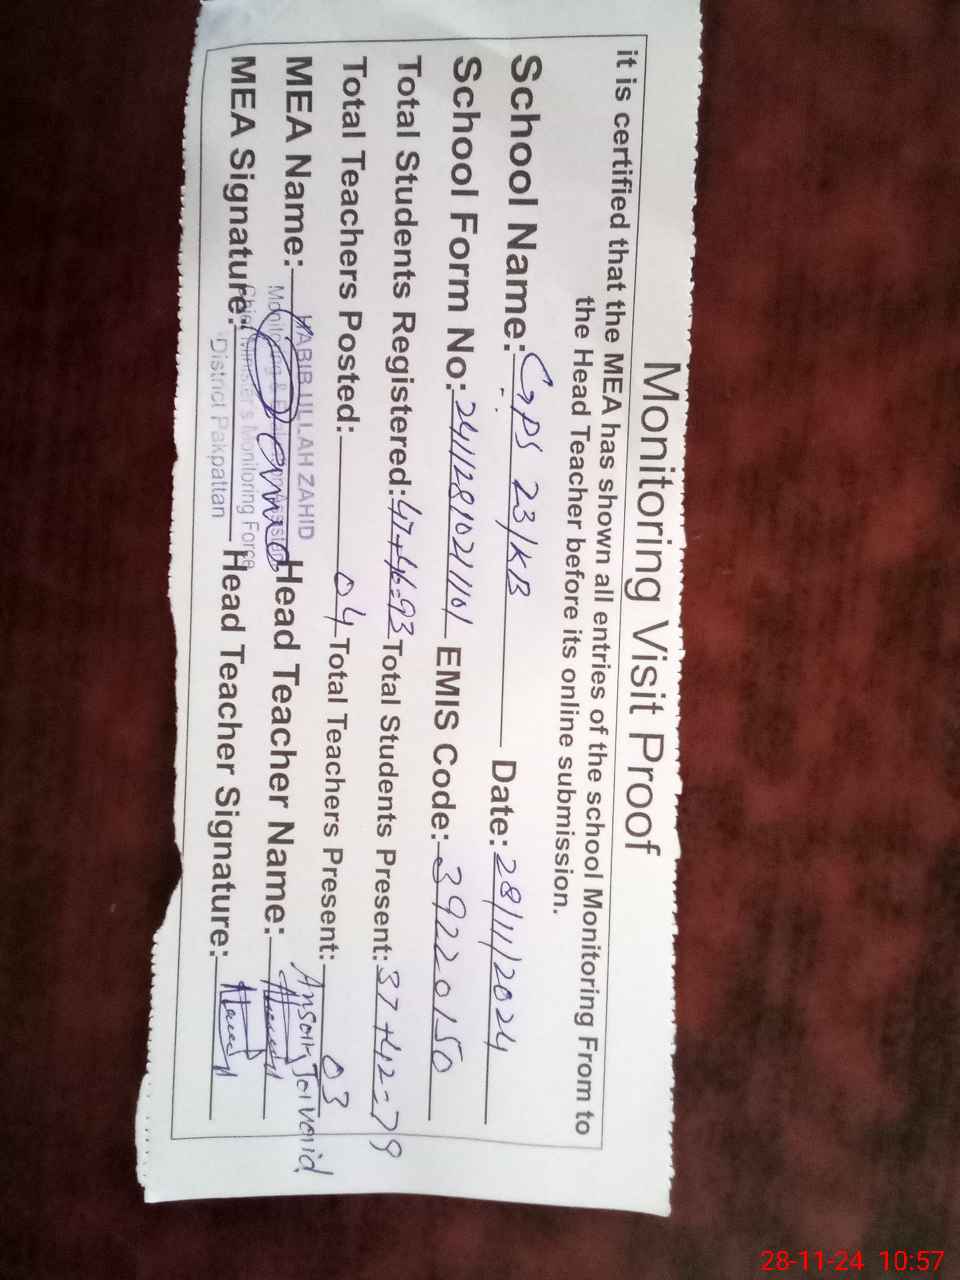 Monitoring Visit Proof
it is certified that the MEA has shown all entries of the school Monitoring From to
the Head Teacher before its online submission.
School Name: GPS 23/KB Date: 28/11/2024
School Form No: 241128102 1101 EMIS Code: 39220150
Total Students Registered: 47+46=93 Total Students Present: 37+42=79
Total Teachers Posted: 04 Total Teachers Present: 03
MEA Name: HABIB ULLAH ZAHID Head Teacher Name: Javaid
Monitoring &
MEA Signature: Chief Minister's Monitoring Force Head Teacher Signature:
District Pakpattan
28-11-24 10:57